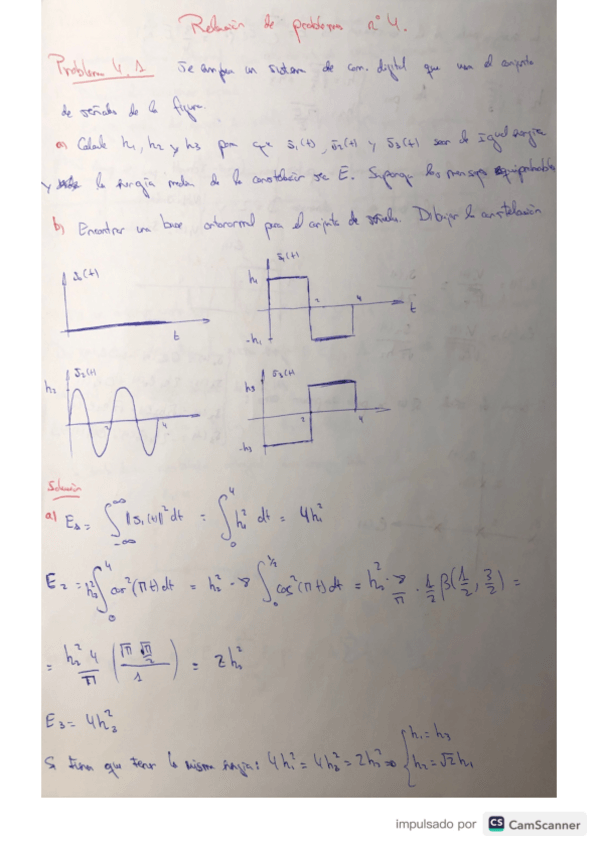 Relación de problemas nº 4.
Problema 4.1 Se emplea un sistema de com. digital que usa el conjunto
de señales de la figura.
a) Calcule h₁, h₂ y h₃ para que s₁(t), s₂(t) y s₃(t) sean de igual energía
y la energía media de la constelación sea E. Suponga los mensajes equiprobables
b) Encontrar una base ortonormal para el conjunto de señales. Dibujar la constelación
s₀(t)
t
s₁(t)
h₁
2
4
t
-h₁
s₂(t)
h₂
2
4
s₃(t)
h₃
2
4
-h₃
Solución
a) E₁ = ∫_{-∞}^{∞} ||s₁(t)||² dt = ∫₀⁴ h₁² dt = 4h₁²
E₂ = h₂² ∫₀⁴ cos²(πt)dt = h₂² · 8 ∫₀^{1/2} cos²(πt)dt = h₂² · 8/π · 1/2 β(1/2, 3/2) =
= h₂² 4/π (√π √π/2 / 1) = 2h₂²
E₃ = 4h₃²
Si tienen que tener la misma energía: 4h₁² = 4h₃² = 2h₂² ⇒ { h₁ = h₃
h₂ = √2 h₁
impulsado por CS CamScanner